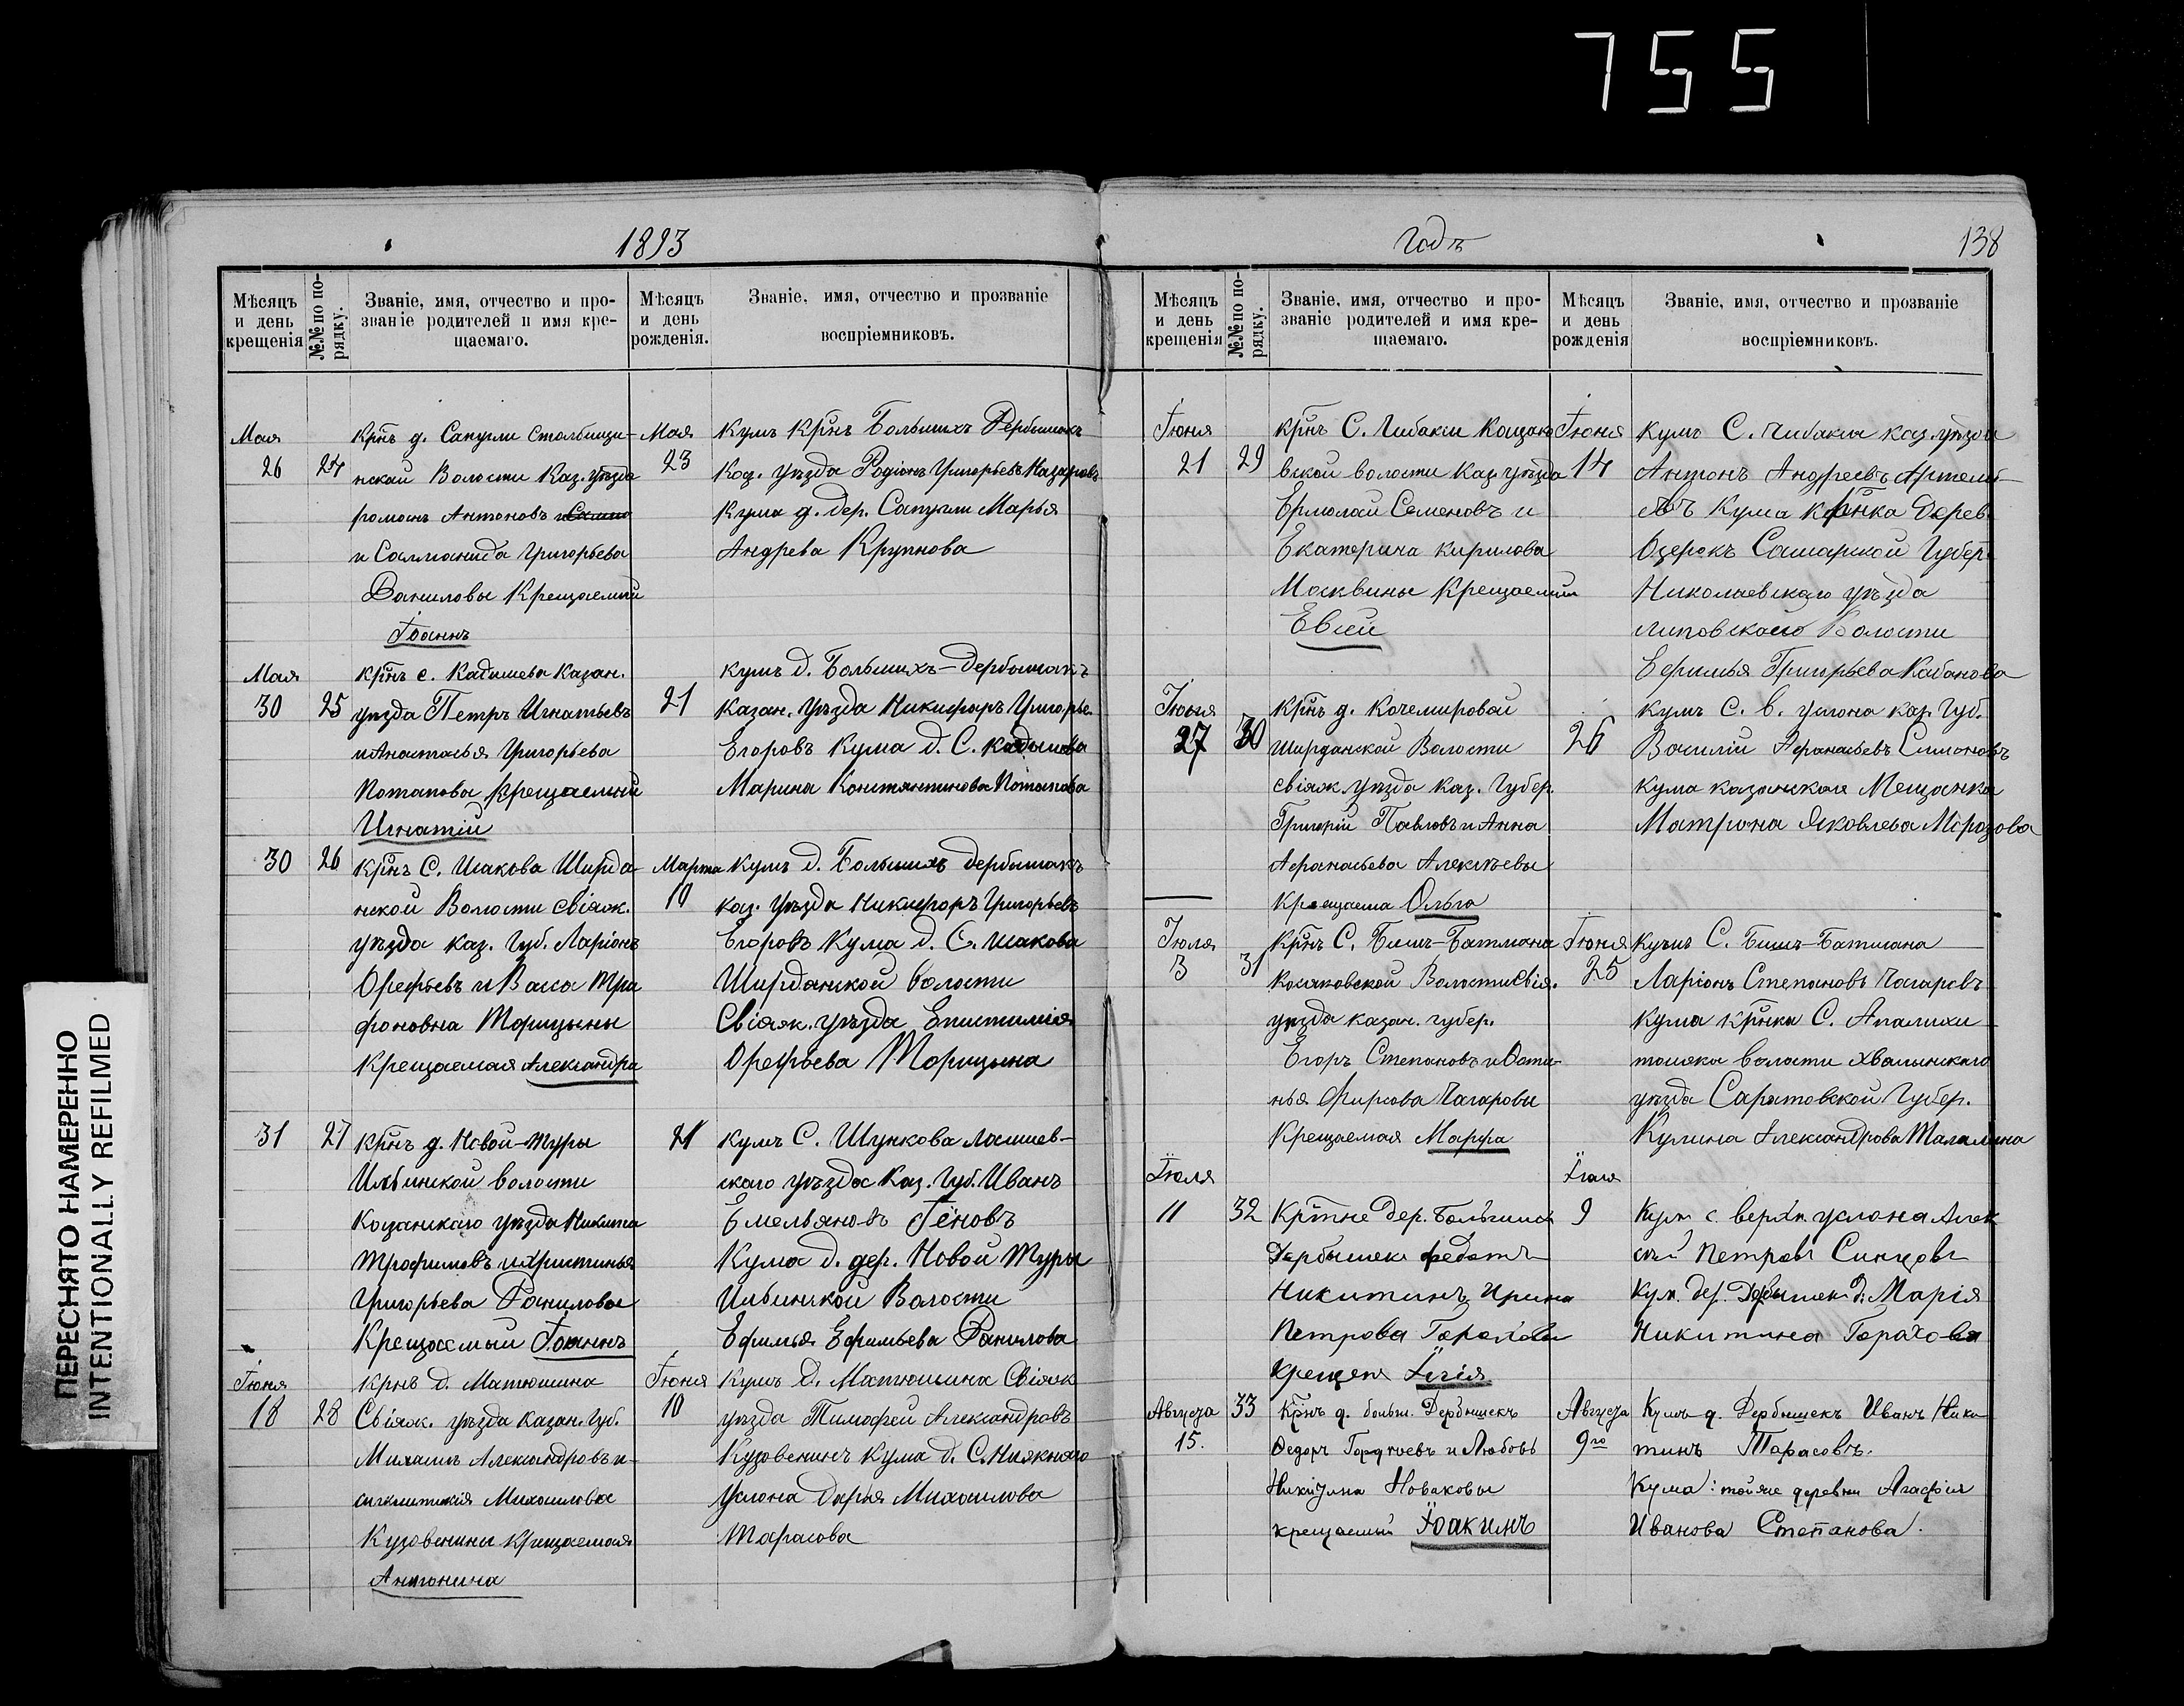 755
1893
Годъ
138
ПЕРЕСНЯТО НАМЕРЕННО
INTENTIONALLY REFILMED
Мѣсяцъ и день крещенія
№№ по порядку.
Званіе, имя, отчество и прозваніе родителей и имя крещаемаго.
Мѣсяцъ и день рожденія.
Званіе, имя, отчество и прозваніе воспріемниковъ.
Мая
26
24
крнъ д. Сапугли Столбищи-
нской Волости Каз. уѣзда
романъ Антоновъ
и Саломанида Григорьева
Даниловы Крещаемый
Іоаннъ
Мая
23
Кумъ крнъ Большихъ Дербышакъ
Каз. уѣзда Родіонъ Григорьевъ Назаровъ
Кума д. дер. Сапугли Марья
Андрева Крупнова
Мая
30
25
крнъ с. Кадишева Казан.
уѣзда Петръ Игнатьевъ
и Анастасья Григорьева
Потапова крещаемый
Игнатій
21
кумъ д. Большихъ-Дербышакъ
Казан. уѣзда Никифоръ Григорье.
Егоровъ Кума д. С. Кадышева
Марина Константинова Потапова
30
26
крнъ С. Исакова Ширда-
нской Волости свіяж.
уѣзда каз. Губ. Ларіонъ
Орефьевъ и Васса Три
фоновна Торицыны
Крещаемая Александра
Марта
10
Кумъ д. Большихъ Дербышакъ
каз. уѣзда Никифоръ Григорьевъ
Егоровъ Кума д. С. Исакова
Ширданской волости
Свіяж. уѣзда Епистимія
Орефьева Торицына
31
27
крнъ д. Новой-Туры
Ильинской волости
Козанскаго уѣзда Никита
Трофимовъ и христинья
Григорьева Даниловы
Крещаемый Іоаннъ
21
кумъ С. Шункова лаишев-
скаго уѣзда Каз. Губ. Иванъ
Емельяновъ
Кума д. дер. Новой Туры
Ильинской Волости
Ефимья Ефимьева Данилова
Іюня
18
28
крнъ д. Матюшина
Свіяж. уѣзда Казан. Губ.
Михаилъ Александровъ и
Михаилова
Кузовенины крещаемая
Антонина
Іюня
10
Кумъ д. Матюшина Свіяж
уѣзда Тимофей Александровъ
Кузовенинъ Кума д. С. Нижняго
Услона Дарья Михаилова
Тарасова
Мѣсяцъ и день крещенія
№№ по порядку.
Званіе, имя, отчество и прозваніе родителей и имя крещаемаго.
Мѣсяцъ и день рожденія
Званіе, имя, отчество и прозваніе воспріемниковъ.
Іюня
21
29
крнъ С. Чибакси Кощако
вской волости каз. уѣзда
Ермолай Семеновъ и
Екатерина Кирилова
Москвины Крещаемый
Евсей
Іюня
14
Кумъ С. Чибакса каз. уѣзда
Антонъ Андреевъ Артемь-
евъ Кума Крнка Дерев.
Озерокъ Самарской Губер.
Николаевскаго уѣзда
липовскаго Волости
Ефимья Григорьева Кабанова
Іюня
27
30
крнъ д. Кочемировой
Ширданской Волости
свіяж. уѣзда каз. Губер.
Григорій Павловъ и Анна
Афанасьева Алексѣевы
Крещаема Ольга
26
кумъ С. в. услона каз. Губ.
Василій Афанасьевъ Симоновъ
Кума казанская Мещанка
Матрона Яковлева Морозова
Іюля
3
31
крнъ С. Бишъ-Батмана
Косяковской Волости Свія.
уѣзда казан. губер.
Егоръ Степановъ и Фети-
нья Фирсова Чагаровы
Крещаемая Марфа
Іюня
25
Кумъ С. Бишъ-Батмана
Ларіонъ Степановъ Чагаровъ
Кума крнка С. Апалихи
волости хвалынскаго
уѣзда Саратовской Губер.
Кулина Александрова Талалина
Іюля
11
32
Кртне дер. Большихъ
Дербышек Федотъ
Никитинъ, Ирина
Петрова Гороховы
крещен
Іюля
9
Кум с. верхн. услона Алек
сѣй Петровъ Синцовъ
Кум. дер. Дербышек д. Марія
Никитина Горахова
Августа
15.
33
Крнъ д. больш. Дербышекъ
Федоръ Гордѣевъ и Любовь
Никитина Новаковы
крещаемый Іоакимъ
Августа
9го
Кумъ д. Дербышекъ Иванъ Ники
тинъ Тарасовъ.
Кума: тойже деревни Агафія
Иванова Степанова.